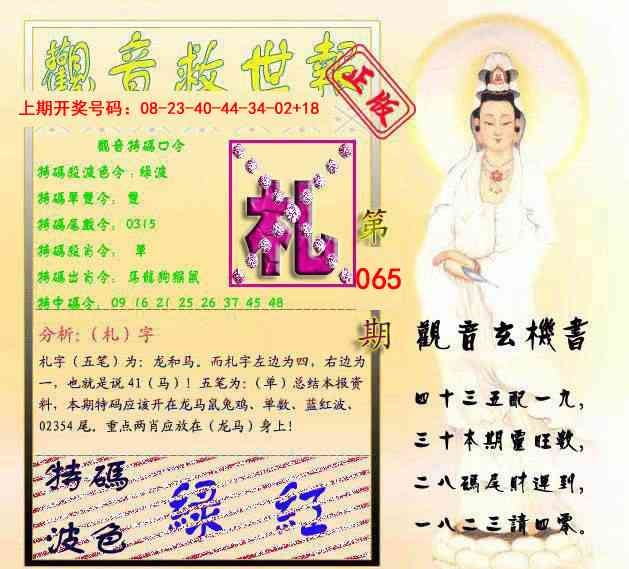 觀音救世報
正版
上期开奖号码：08-23-40-44-34-02+18
觀音特碼口令
特碼殺波色令：綠波
特碼單雙令：雙
特碼尾數令：0315
特碼殺肖令： 單
特碼出肖令：馬龍狗猴鼠
特中碼令：09 16 21 25 26 37 45 48
札
第
065
期
分析：（札）字
札字（五笔）为：龙和马。而札字左边为四，右边为
一，也就是说 41（马）！五笔为：（单）总结本报资
料，本期特码应该开在龙马鼠兔鸡、单数、蓝红波、
02354 尾。重点两肖应放在（龙马）身上！
特碼
波色
綠 紅
觀音玄機書
四十三五配一九，
三十本期靈旺數，
二八碼尾財運到，
一八二三請四零。